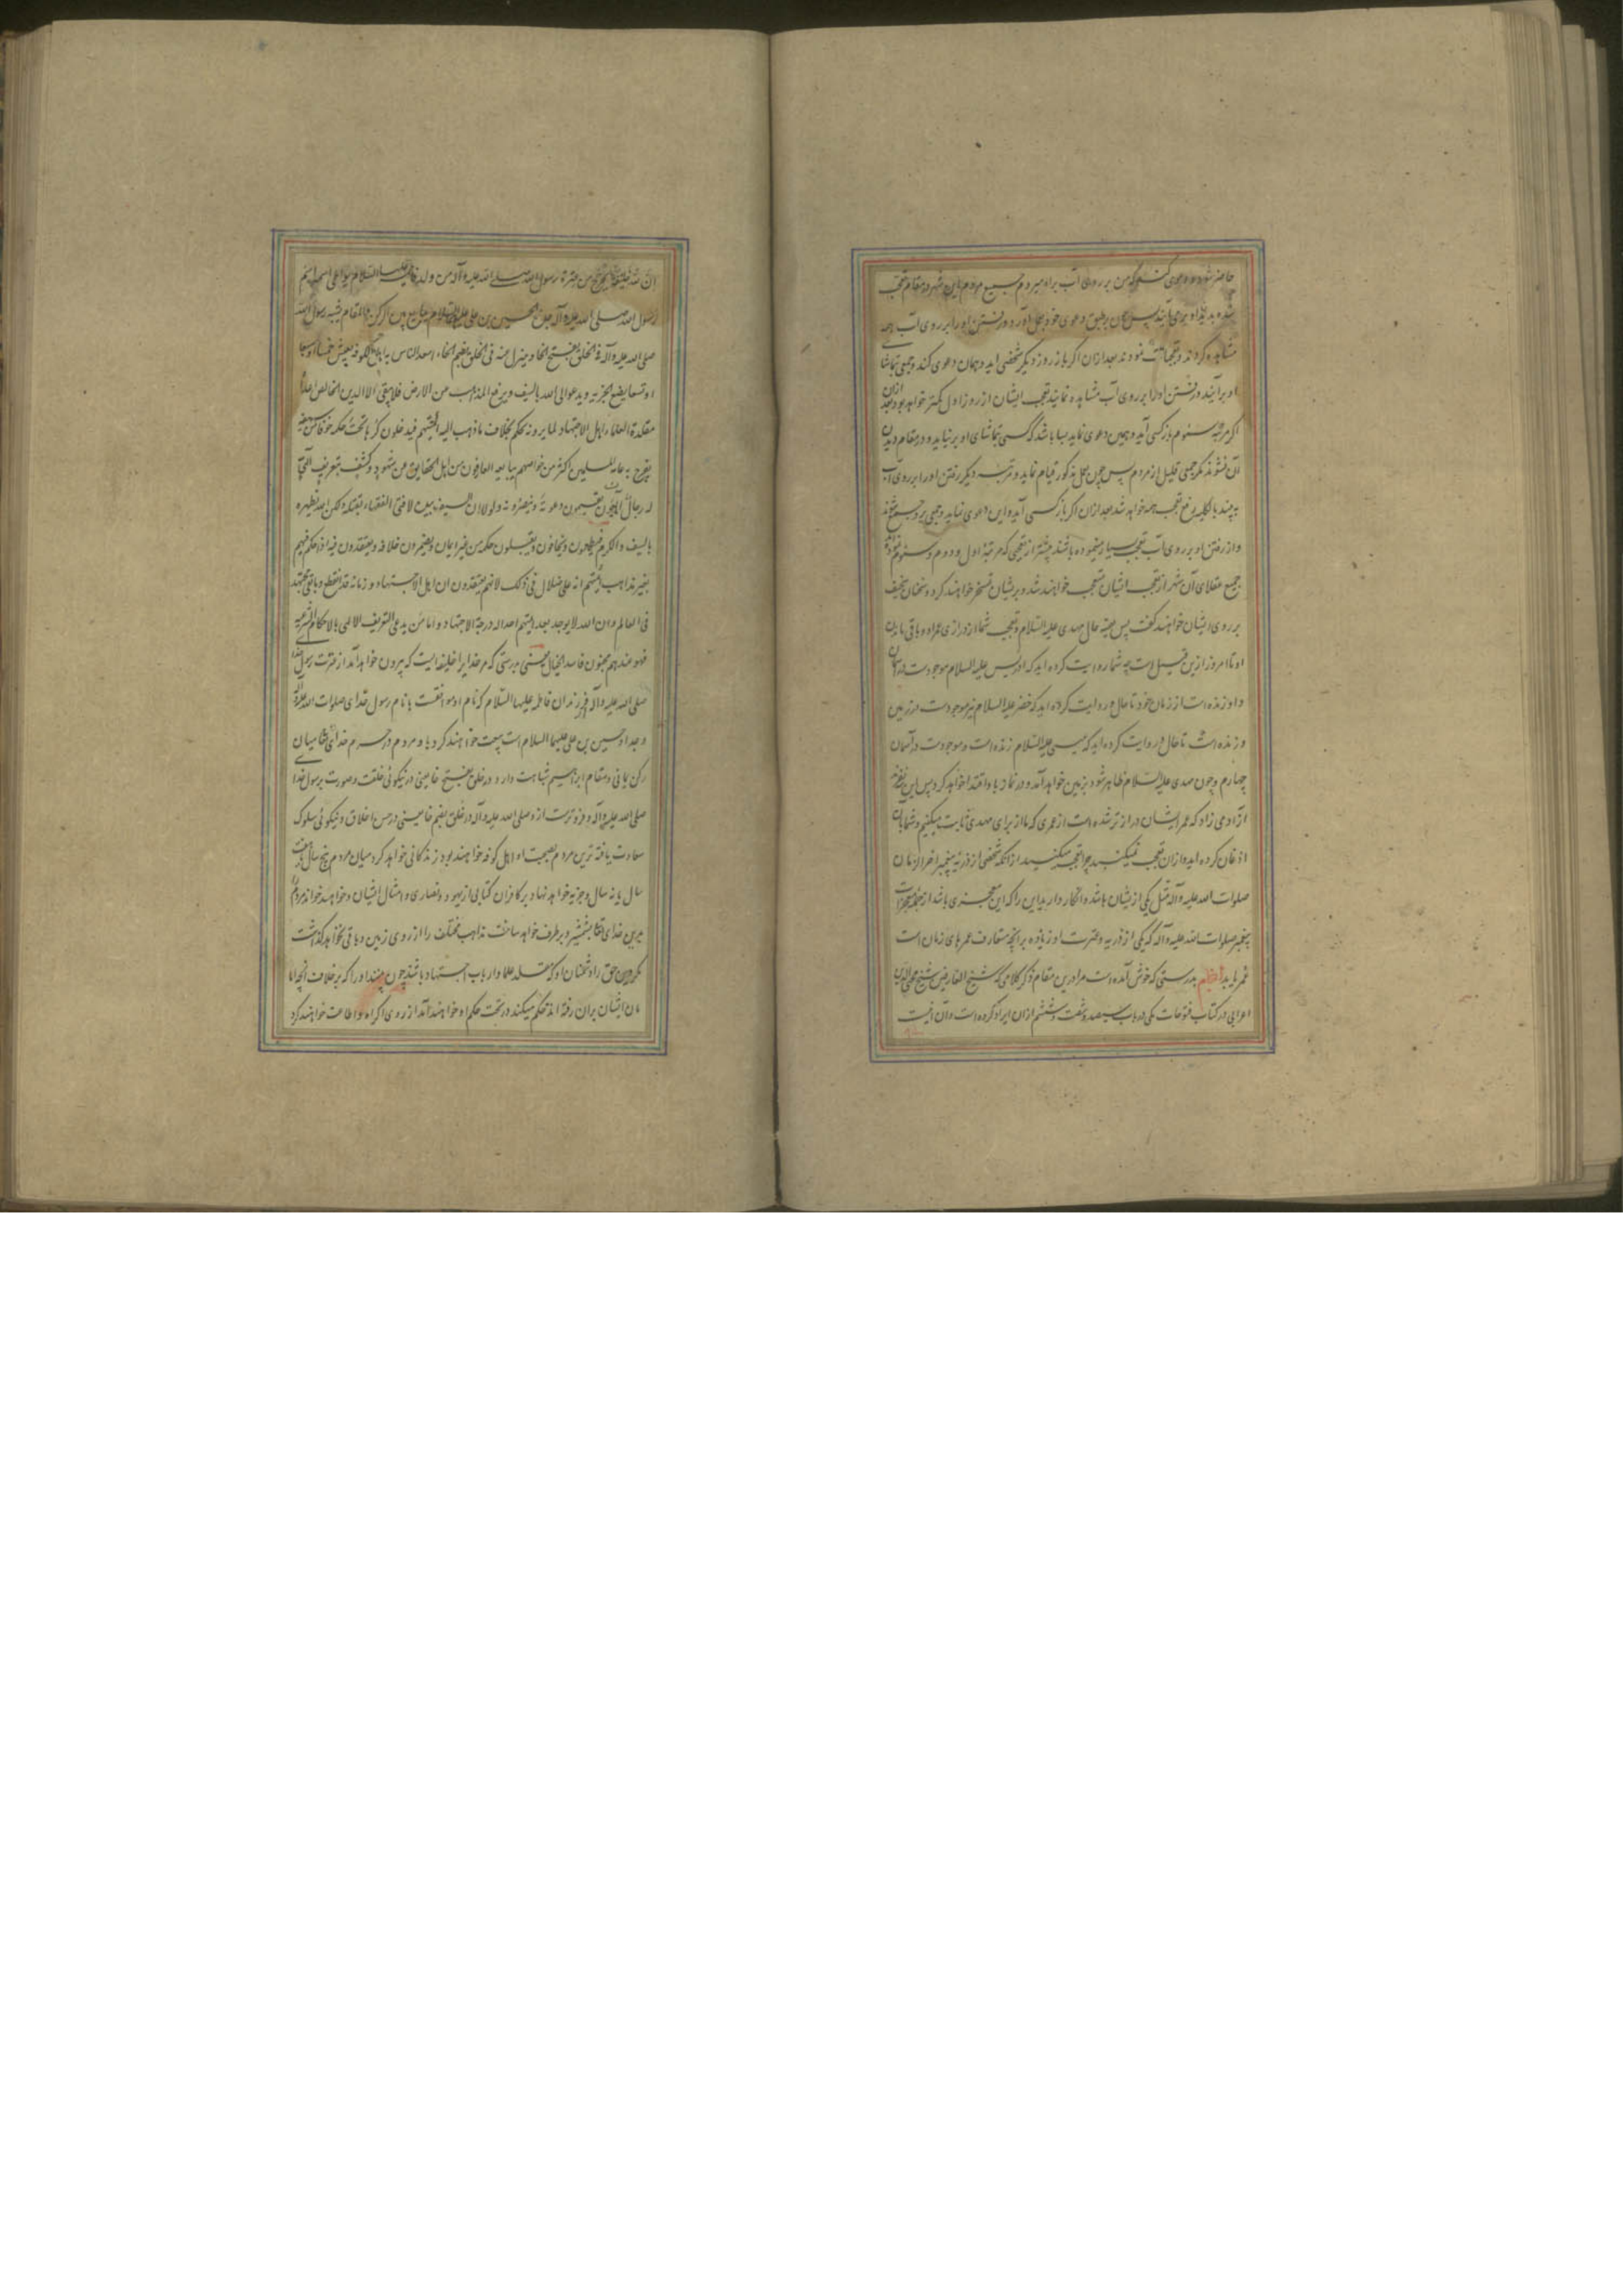 حاضر شود و دعوی کند که من بر روی آب راه میروم جمیع مردم این شهر در مقام تعجب
شده بدیدن او می‌آیند پس چون بر طبق دعوی خود بعمل آورد و رفتن او را بر روی آب همه
مشاهده کردند و تعجبها نمودند بعد ازان اکر باز روز دیکر شخصی اید و همان دعوی کند و جمعی بتماشا
او برآیند و رفتن او را بر روی آب مشاهده نمایند تعجب ایشان از روز اول کمتر خواهد بود بعد ازان
اکر مرتبه سئوم باز کسی آید و همین دعوی نماید بسا باشد که کسی بتماشای او بر نیاید و در مقام دیدن
آن نشوند مکر جمعی قلیل از مردم پس چون بعمل مذکور قیام نماید و مرتبه دیکر رفتن او را بر روی آب
به بینند بالکلیه رفع تعجب همه خواهد شد بعد ازان اکر باز کسی آید و این دعوی نماید و جمعی بر و جمع شوند
و از رفتن او بر روی آب تعجب بسیار مینموده باشند بیشتر از تعجبی که مرتبه اول و دوم و سئوم نموده
جمیع عقلای آن شهر از تعجب ایشان متعجب خواهند شد و بر یشان تمسخر خواهند کرد و سخنان سخیف
بر روی ایشان خواهند کفت پس بعینه حال مهدی علیه السلام و تعجب شما از درازی عمر او و باقی ماندن
او تا امروز ازین قبیل است چه شما روایت کرده اید که ادریس علیه السلام موجودست در آسمان
و او زنده است از زمان خود تا حال و روایت کرده اید که خضر علیه السلام نیز موجودست در زمین
و زنده است تا حال و روایت کرده اید که عیسی علیه السلام زنده است و موجودست در آسمان
چهارم و چون مهدی علیه السلام ظاهر شود بزمین خواهد آمد و در نماز باو اقتدا خواهد کرد پس این سه نفرند
از آدمی زاد که عمر ایشان دراز تر شده است از عمری که ما از برای مهدی ثابت میکنیم و شما بان
اذعان کرده اید و ازان تعجب نمیکنید چرا تعجب میکنید از انکه شخصی از ذریه پیغمبر آخر الزمان
صلوات الله علیه و آله مثل یکی از یشان باشد و انکار دارید این را که این معجزی باشد از جمله معجزات
پیغمبر صلوات الله علیه و آله که یکی از ذریه و عترت او زیاده بر انچه متعارف عمرهای زمان است
عمر یابد بدرستی که خوش آمده است مرا درین مقام ذکر کلامی که شیخ العارفین شیخ محی الدین
اعرابی در کتاب فتوحات مکی در باب سیصد و شصت و ششم ازان ایراد کرده است و آن اینست
ان لله خلیفة یخرج من عترة رسول الله صلی الله علیه و آله من ولد فاطمه علیها السلام یواطی اسمه اسم
رسول الله صلی الله علیه و آله جده الحسین بن علی علیه السلام یبایع بین الرکن والمقام یشبه رسول الله
صلی الله علیه و آله فی الخلق بفتح الخا و ینزل عنه فی الخلق بضم الخاء اسعد الناس به اهل الکوفه یعیش خمسا او سبعا
او تسعا یضع الجزیه و یدعو الی الله بالسیف و یرفع المذاهب من الارض فلا یبقی الا الدین الخالص اعداؤه
مقلدة العلماء اهل الاجتهاد لما یرونه یحکم بخلاف ما ذهب الیه ائمتهم فیدخلون کرها تحت حکمه خوفا من سیفه
یفرح به عامة المسلمین اکثر من خواصهم یبایعه العارفون من اهل الحقایق عن شهود و کشف بتعریف الهی
له رجال الهیون یقیمون دعوته و ینصرونه و لو لا ان السیف بیده لافتی الفقهاء بقتله و لکن الله یظهره
بالسیف و الکرم فیطمعون و یخافون و یقبلون حکمه من غیر ایمان و یضمرون خلافه و یعتقدون فیه اذا حکم فیهم
بغیر مذاهب ائمتهم انه علی ضلال فی ذلک لانهم یعتقدون ان اهل الاجتهاد و زمانه قد انقطع و ما بقی مجتهد
فی العالم و ان الله لا یوجد بعد ائمتهم احدا له درجة الاجتهاد و اما من یدعی التعریف الالهی بالاحکام الشرعیه
فهو عندهم مجنون فاسد الخیال یعنی بدرستی که مر خدا را خلیفه ایست که بیرون خواهد آمد از عترت رسول خدا
صلی الله علیه و آله از فرزندان فاطمه علیها السلام که نام او موافقست با نام رسول خدای صلوات الله علیه و آله
و جد او حسین بن علی علیهما السلام است بیعت خواهند کرد با او مردم در حرم خدای تعالی میان
رکن یمانی و مقام ابراهیم شباهت دارد در خلق بفتح خا یعنی در نیکوئی خلقت و صورت برسول خدا
صلی الله علیه و آله و فروترست از و صلی الله علیه و آله در خلق بضم خا یعنی در حسن اخلاق و نیکوئی سلوک
سعادت یافته ترین مردم بصحبت او اهل کوفه خواهند بود زندکانی خواهد کرد میان مردم پنج سال یا هفت
سال یا نه سال و جزیه خواهد نهاد بر کافران کتابی از یهود و نصاری و امثال ایشان و خواهد خواند مردم را
بدین خدای تعالی بشمشیر و بر طرف خواهد ساخت مذاهب مختلف را از روی زمین و باقی نخواهد کذاشت
مکر دین حق را و دشمنان او که مقلد علما و ارباب اجتهاد باشند چون بینند او را که بر خلاف انچه اما
مان ایشان بران رفته اند حکم میکند در تحت حکم او خواهند آمد از روی اکراه و اطاعت خواهند کرد